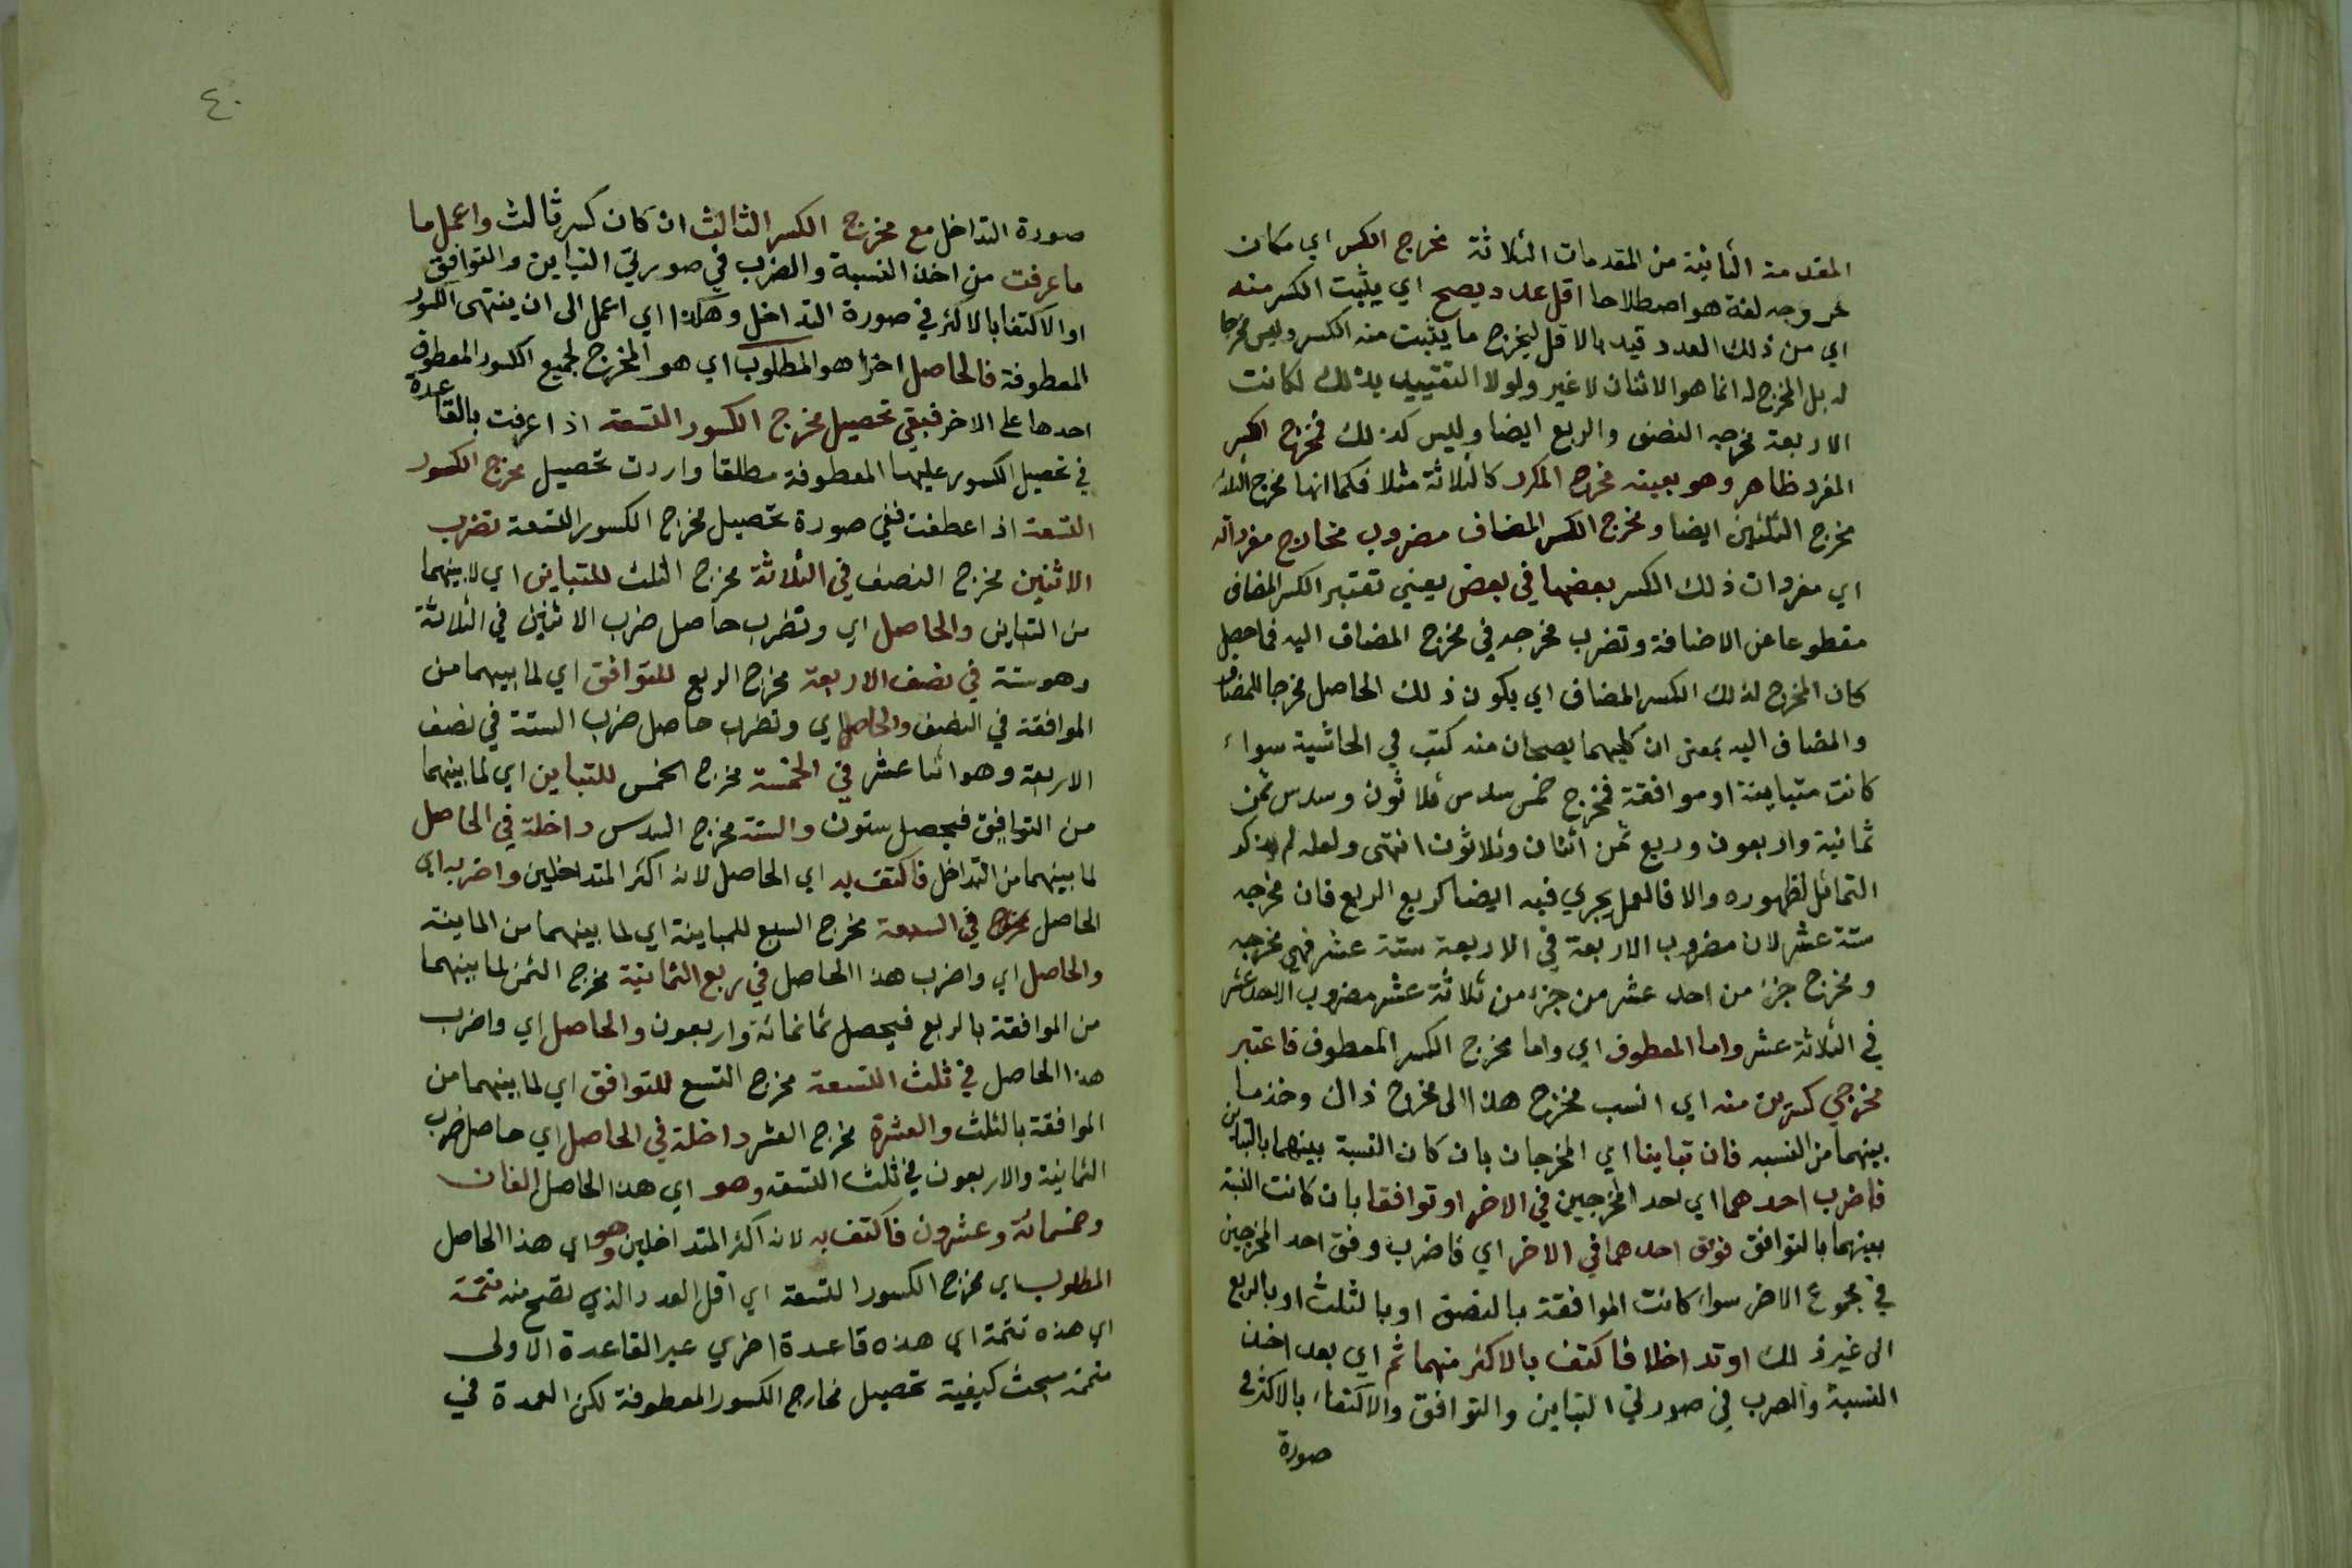 المقدمة الثانية من المقدمات الثلاثة مخرج الكسر اي مكان
خروجه لغة هو اصطلاحا اقل عدد يصح اي يثبت الكسر منه
اي من ذلك العدد قيد بالاقل ليخرج ما يثبت منه الكسر وليس مخرجا
له بل المخرج له انما هو الاثنان لا غير ولولا التقييد بذلك لكانت
الاربعة مخرجه النصف والربع ايضا وليس كذلك فمخرج الكسر
المفرد ظاهر وهو بعينه مخرج المكرر كالثلاثة مثلا فكما انها مخرج الثلث
مخرج الثلثين ايضا ومخرج الكسر المضاف مضروب مخارج مفرداته
اي مفردات ذلك الكسر بعضها في بعض يعني تعتبر الكسر المضاف
مقطوعا عن الاضافة وتضرب مخرجه في مخرج المضاف اليه فما حصل
كان المخرج لذلك الكسر المضاف اي يكون ذلك الحاصل مخرجا للمضاف
والمضاف اليه بمعنى ان كليهما يصحان منه كتب في الحاشية سواء
كانت متباينة او موافقة فمخرج خمس سدس ثلاثون وسدس ثمن
ثمانية واربعون وربع ثمن اثنان وثلاثون انتهى ولعله لم يذكر
التماثل لظهوره والا فالعمل يجري فيه ايضا كربع الربع فان مخرجه
ستة عشر لان مضروب الاربعة في الاربعة ستة عشر فهي مخرجه
ومخرج جزء من احد عشر من جزء من ثلاثة عشر مضروب الاحد عشر
في الثلاثة عشر واما المعطوف اي واما مخرج الكسر المعطوف فاعتبر
مخرجي كسرين منه اي انسب مخرج هذا الى مخرج ذاك وخذ ما
بينهما من النسبه فان تباينا اي المخرجان بان كان النسبة بينهما بالتباين
فاضرب احدهما اي احد المخرجين في الاخر او توافقا بان كانت النسبة
بينهما بالتوافق فوفق احدهما في الاخر اي فاضرب وفق احد المخرجين
في مجموع الاخر سواء كانت الموافقة بالنصف او بالثلث او بالربع
الى غير ذلك او تداخلا فاكتف بالاكثر منهما ثم اي بعد اخذ
النسبة والضرب في صورتي التباين والتوافق والاكتفاء بالاكثر في
صورة
٤٠
صورة التداخل مع مخرج الكسر الثالث ان كان كسر ثالث واعمل ما
ما عرفت من اخذ النسبة والضرب في صورتي التباين والتوافق
او الاكتفا بالاكثر في صورة التداخل وهكذا اي اعمل الى ان ينتهى الكسور
المعطوفة فالحاصل اخرا هو المطلوب اي هو المخرج لجميع الكسور المعطوف
احدها على الاخر فبقي تحصيل مخرج الكسور التسعة اذا عرفت بالقاعدة
في تحصيل الكسور عليها المعطوفة مطلقا واردت تحصيل مخرج الكسور
التسعة اذا عطفت ففي صورة تحصيل مخرج الكسور التسعة تضرب
الاثنين مخرج النصف في الثلاثة مخرج الثلث للتباين اي لا بينهما
من التباين والحاصل اي وتضرب حاصل ضرب الاثنين في الثلاثة
وهو ستة في نصف الاربعة مخرج الربع للتوافق اي لما بينهما من
الموافقة في النصف والحاصل اي وتضرب حاصل ضرب الستة في نصف
الاربعة وهو اثنا عشر في الخمسة مخرج الخمس للتباين اي لما بينهما
من التوافق فيحصل ستون والستة مخرج السدس داخلة في الحاصل
لما بينهما من التداخل فاكتف به اي الحاصل لانه اكثر المتداخلين واضربه اي
الحاصل في السبعة مخرج السبع للمباينة اي لما بينهما من الماينة
والحاصل اي واضرب هذا الحاصل في ربع الثمانية مخرج الثمن لما بينهما
من الموافقة بالربع فيحصل ثمانمائة واربعون والحاصل اي واضرب
هذا الحاصل في ثلث التسعة مخرج التسع للتوافق اي لما بينهما من
الموافقة بالثلث والعشرة مخرج العشر داخلة في الحاصل اي حاصل ضرب
الثمانية والاربعون في ثلث التسعة وهو اي هذا الحاصل الفان
وخمسمائة وعشرون فاكتف به لانه اكثر المتداخلين وهو اي هذا الحاصل
المطلوب اي مخرج الكسور التسعة اي اقل العدد الذي تصح منه تتمة
اي هذه تتمة اي هذه قاعدة اخرى غير القاعدة الاولى
متممة مبحث كيفية تحصيل مخارج الكسور المعطوفة لكن العمدة في